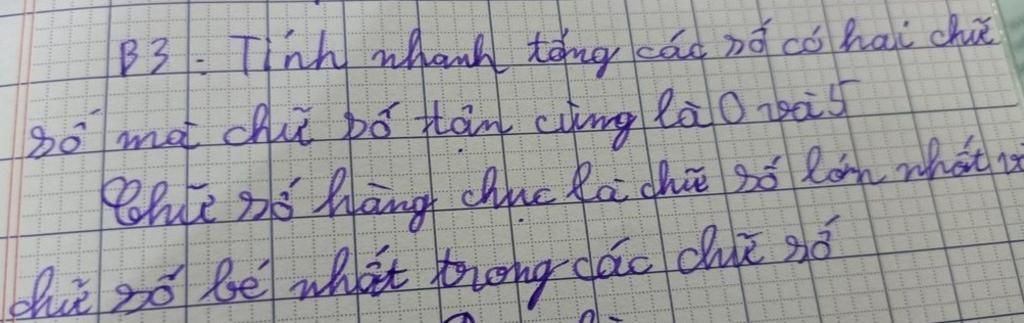 B3: Tính nhanh tổng các số có hai chữ
số mà chữ số tận cùng là 0 và 5
Chữ số hàng chục là chữ số lớn nhất và
chữ số bé nhất trong các chữ số